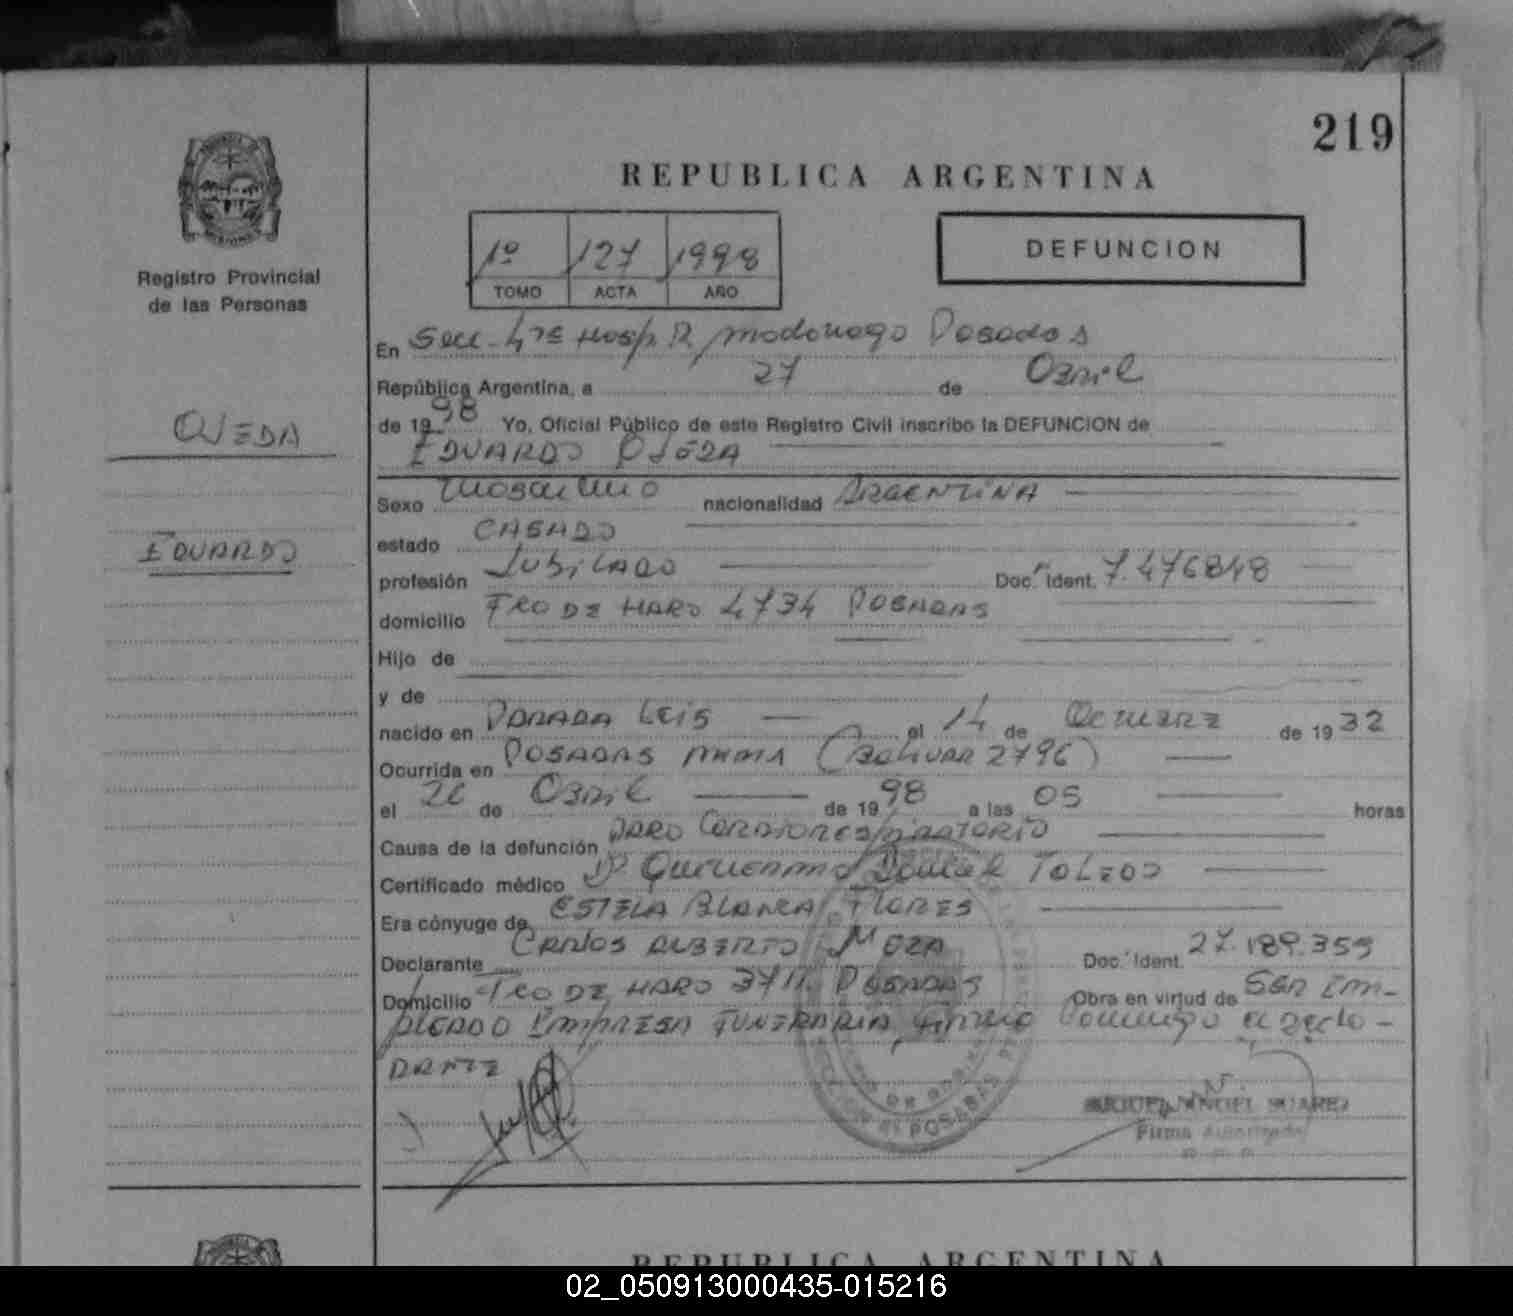 219
REPUBLICA ARGENTINA
1º 127 1998
TOMO ACTA AÑO
DEFUNCION
Registro Provincial
de las Personas
En Secc. 4ta Hosp. R. Madariaga Posadas
República Argentina, a 27 de Abril
de 1998 Yo, Oficial Público de este Registro Civil inscribo la DEFUNCION de
OJEDA
EDUARDO OJEDA
Sexo masculino nacionalidad ARGENTINA
estado CASADO
EDUARDO
profesión JUBILADO Doc. Ident. 7.476848
domicilio FCO DE HARO 4734 POSADAS
Hijo de
y de
nacido en PARADA LEIS el 14 de OCTUBRE de 1932
Ocurrida en POSADAS MNES (BOLIVAR 2796)
el 26 de Abril de 1998 a las 05 horas
Causa de la defunción PARO CARDIORESPIRATORIO
Certificado médico Dr TOLEDO
Era cónyuge de ESTELA BLANCA FLORES
Declarante CARLOS ALBERTO MEZA Doc. Ident. 27.189.359
Domicilio FCO DE HARO 3711 POSADAS Obra en virtud de SER EM-
PLEADO EMPRESA FUNERARIA
MIGUEL ANGEL SUAREZ
Firma Autorizada
POSADAS
REPUBLICA ARGENTINA
02_050913000435-015216